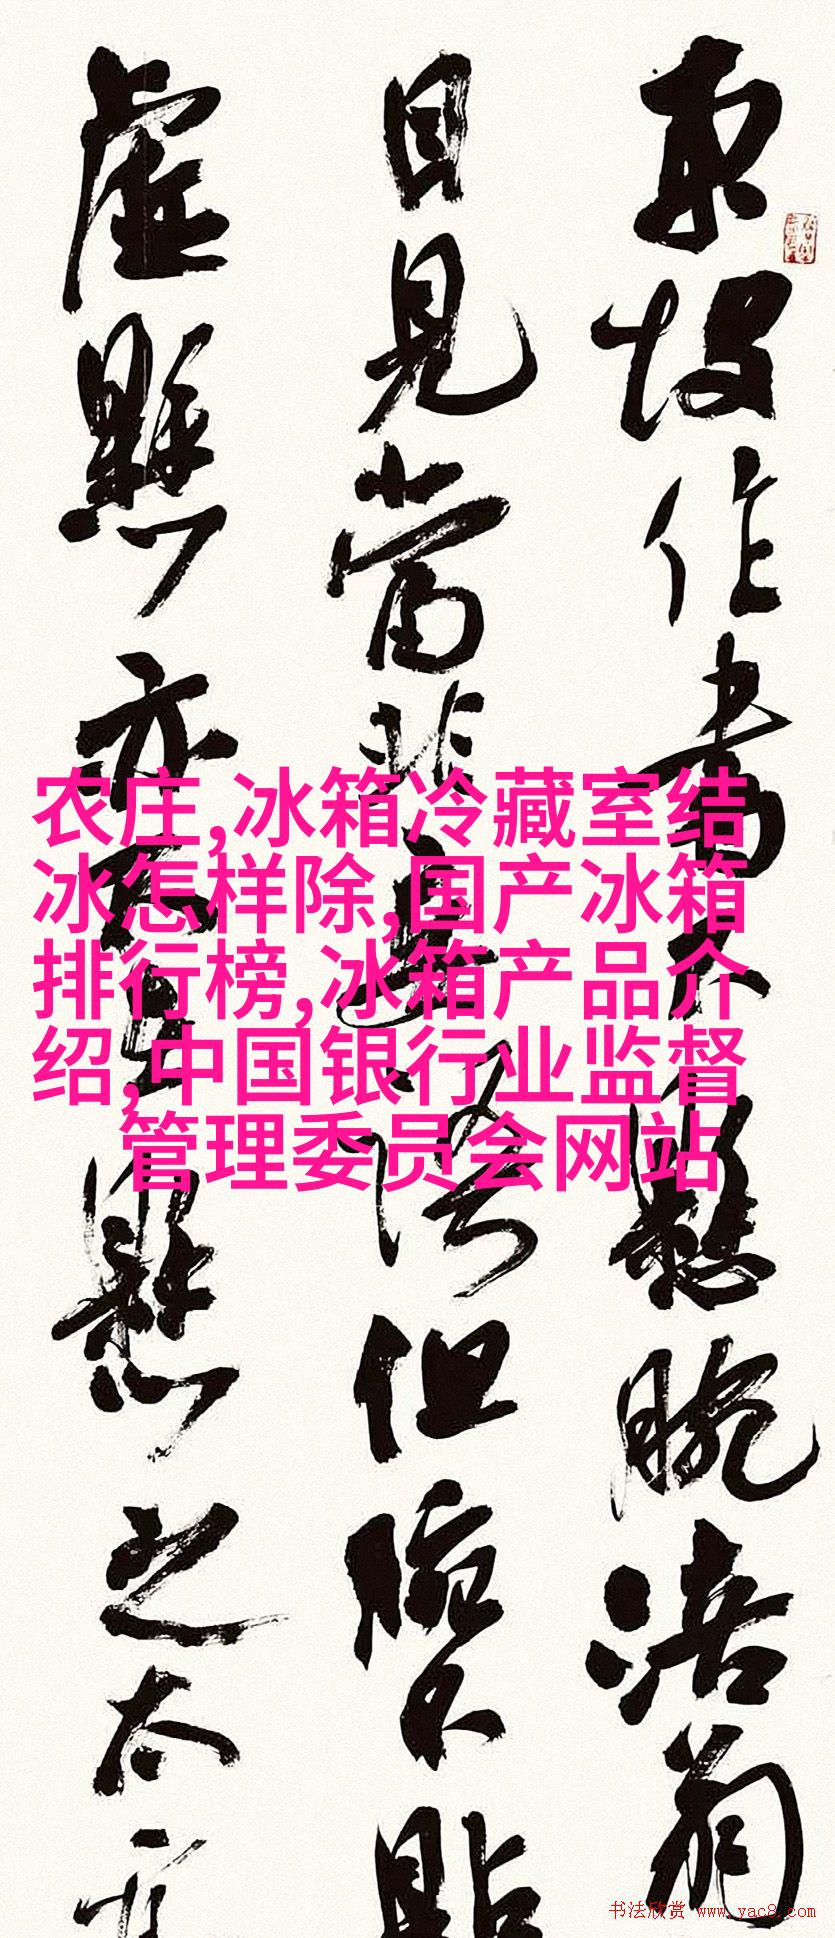 東坡作書不懸腕涪翁
目見當非語但腕不貼
虛懸亦懸之太
农庄,冰箱冷藏室结
冰怎样除,国产冰箱
排行榜,冰箱产品介
绍,中国银行业监督
管理委员会网站
书法欣赏 www.yac8.com